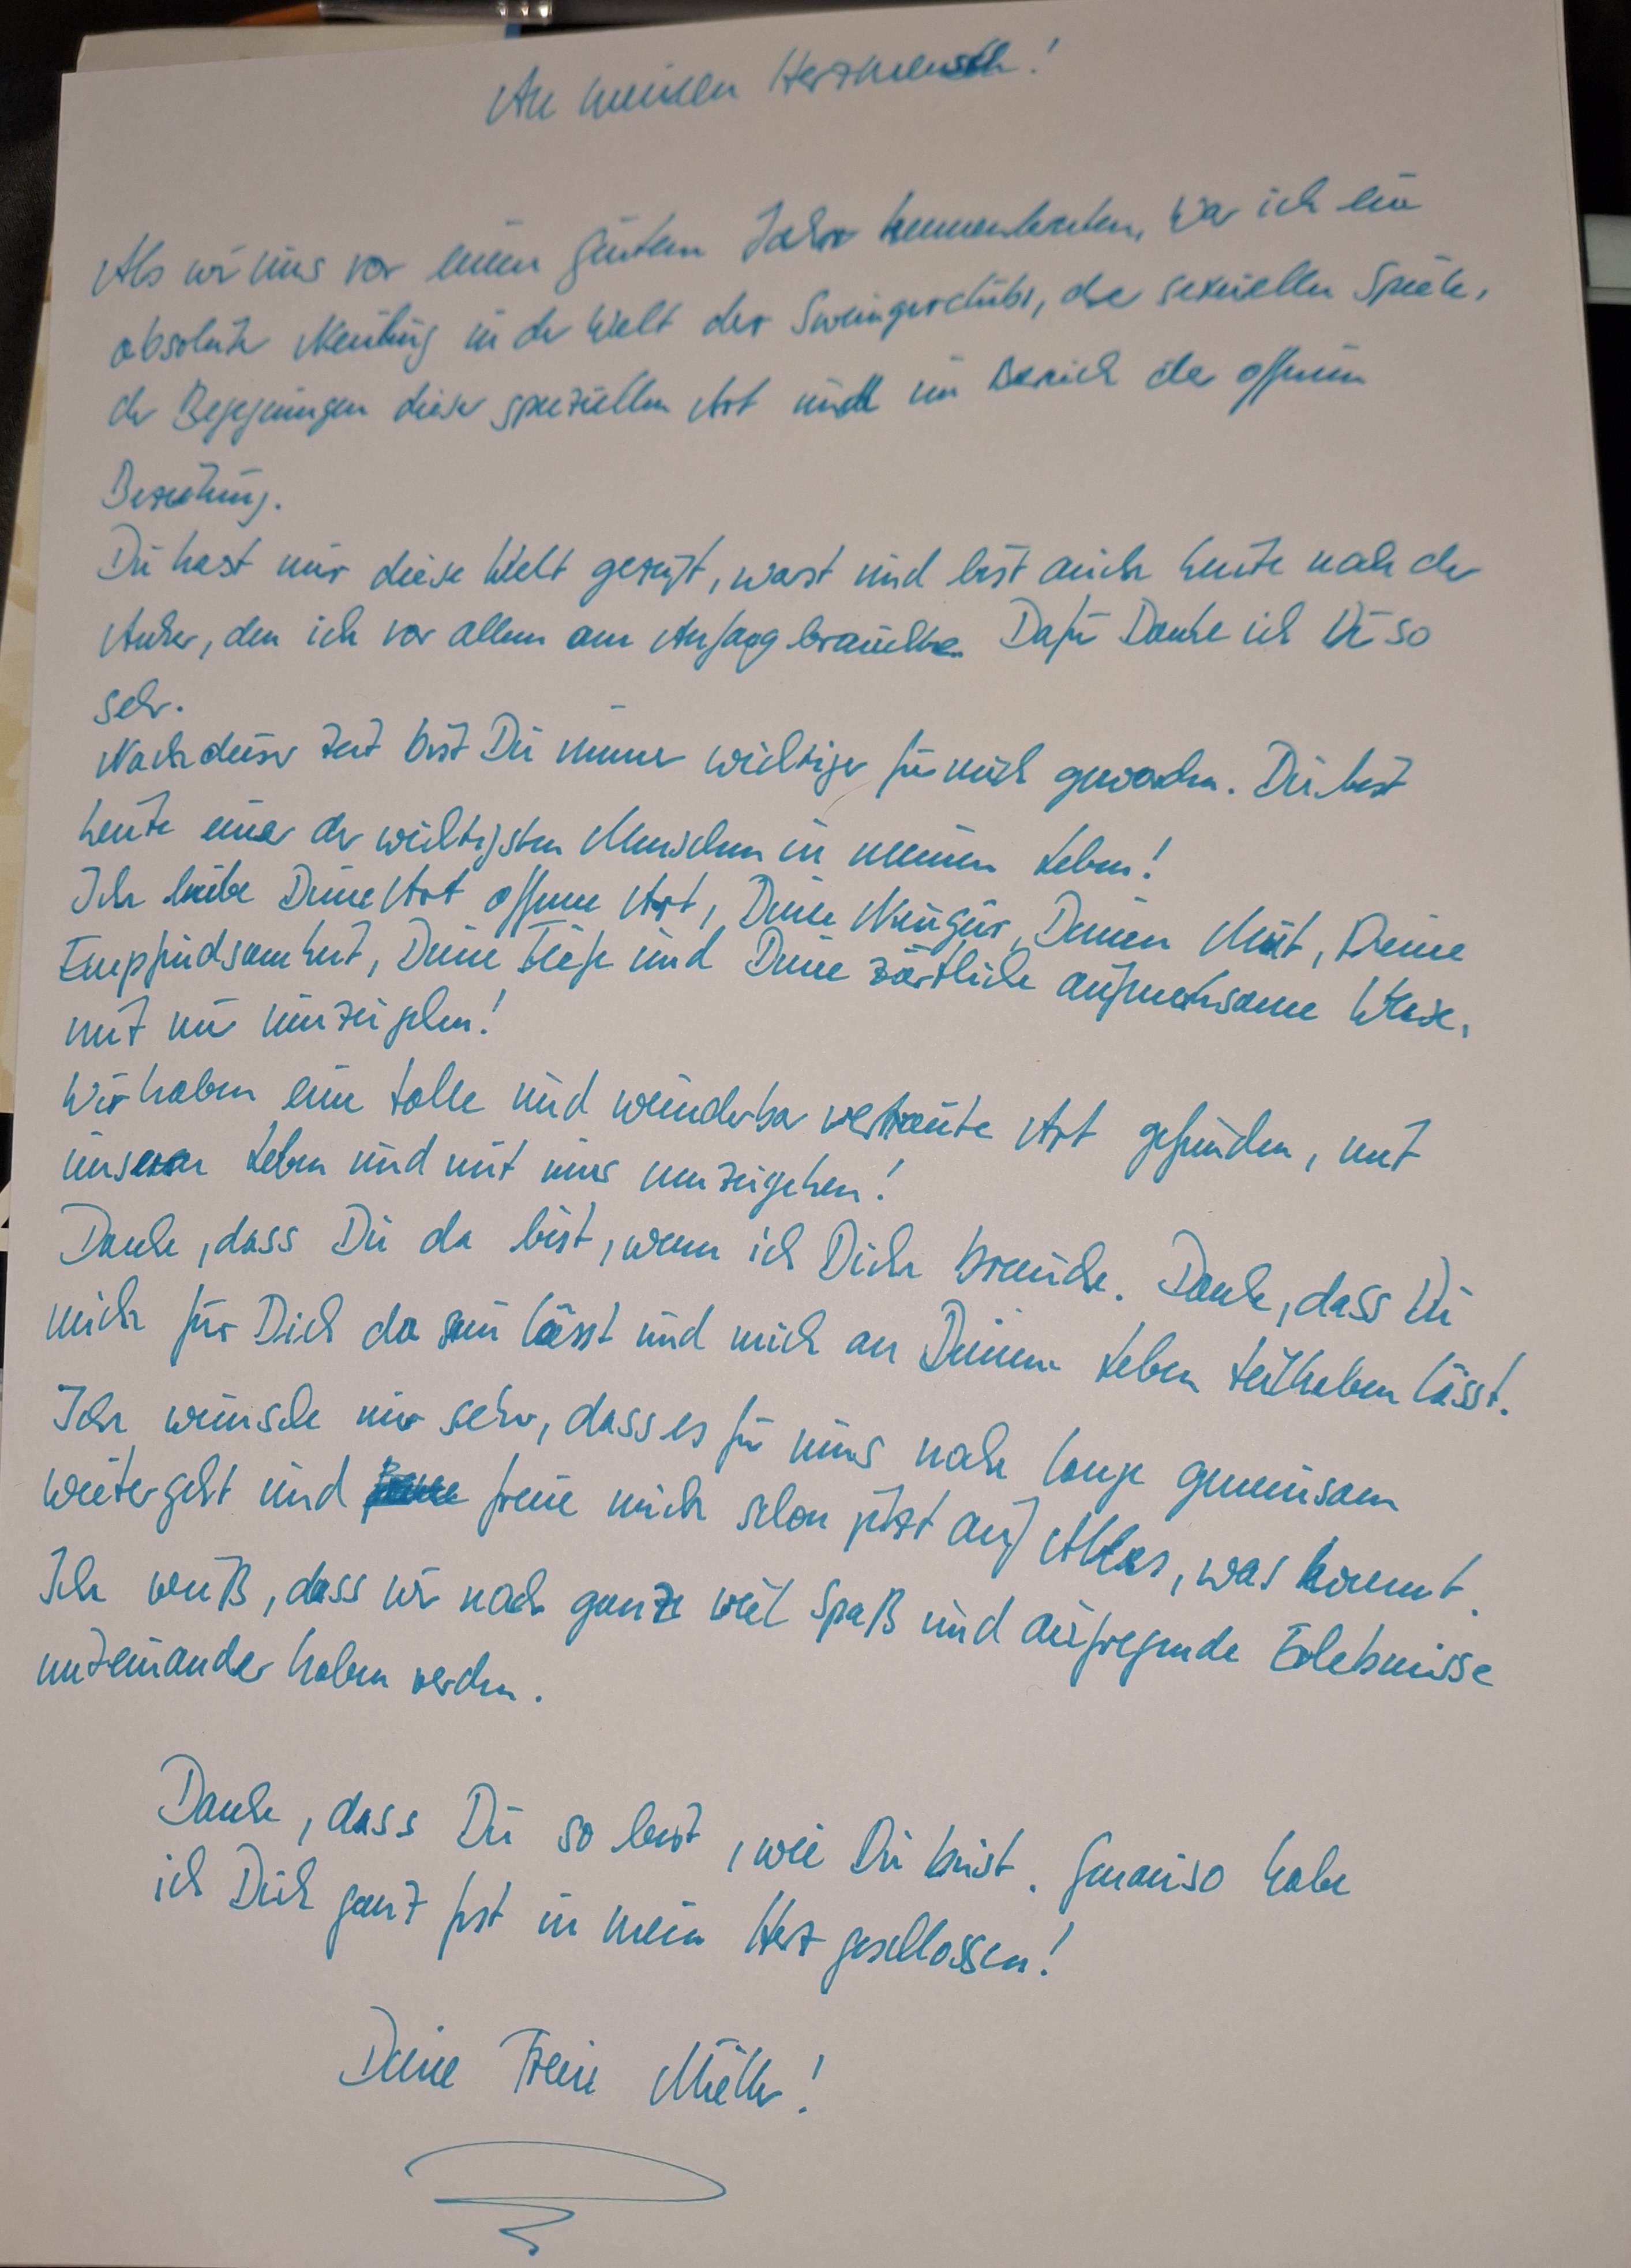 An meinen Herzmensch!
Als wir uns vor einem guten Jahr kennenlernten, war ich ein
absoluter Neuling in der Welt der Swingerclubs, der sexuellen Spiele,
der Begegnungen dieser speziellen Art und im Bereich der offenen
Beziehung.
Du hast mir diese Welt gezeigt, warst und bist auch heute noch der
Anker, den ich vor allem am Anfang brauchte. Dafür Danke ich Dir so
sehr.
Nach dieser Zeit bist Du immer wichtiger für mich geworden. Du bist
heute einer der wichtigsten Menschen in meinem Leben!
Ich liebe Deine Art offene Art, Deine Neugier, Deinen Mut, Deine
Empfindsamkeit, Deine Tiefe und Deine zärtliche aufmerksame Weise,
mit mir umzugehen!
Wir haben eine tolle und wunderbar vertraute Art gefunden, mit
unserem Leben und mit uns umzugehen!
Danke, dass Du da bist, wenn ich Dich brauche. Danke, dass Du
mich für Dich da sein lässt und mich an Deinem Leben teilhaben lässt.
Ich wünsche mir sehr, dass es für uns noch lange gemeinsam
weitergeht und freue mich schon jetzt auf Alles, was kommt.
Ich weiß, dass wir noch ganz viel Spaß und aufregende Erlebnisse
miteinander haben werden.
Danke, dass Du so bist, wie Du bist. Genauso habe
ich Dich ganz fest in mein Herz geschlossen!
Deine Freie